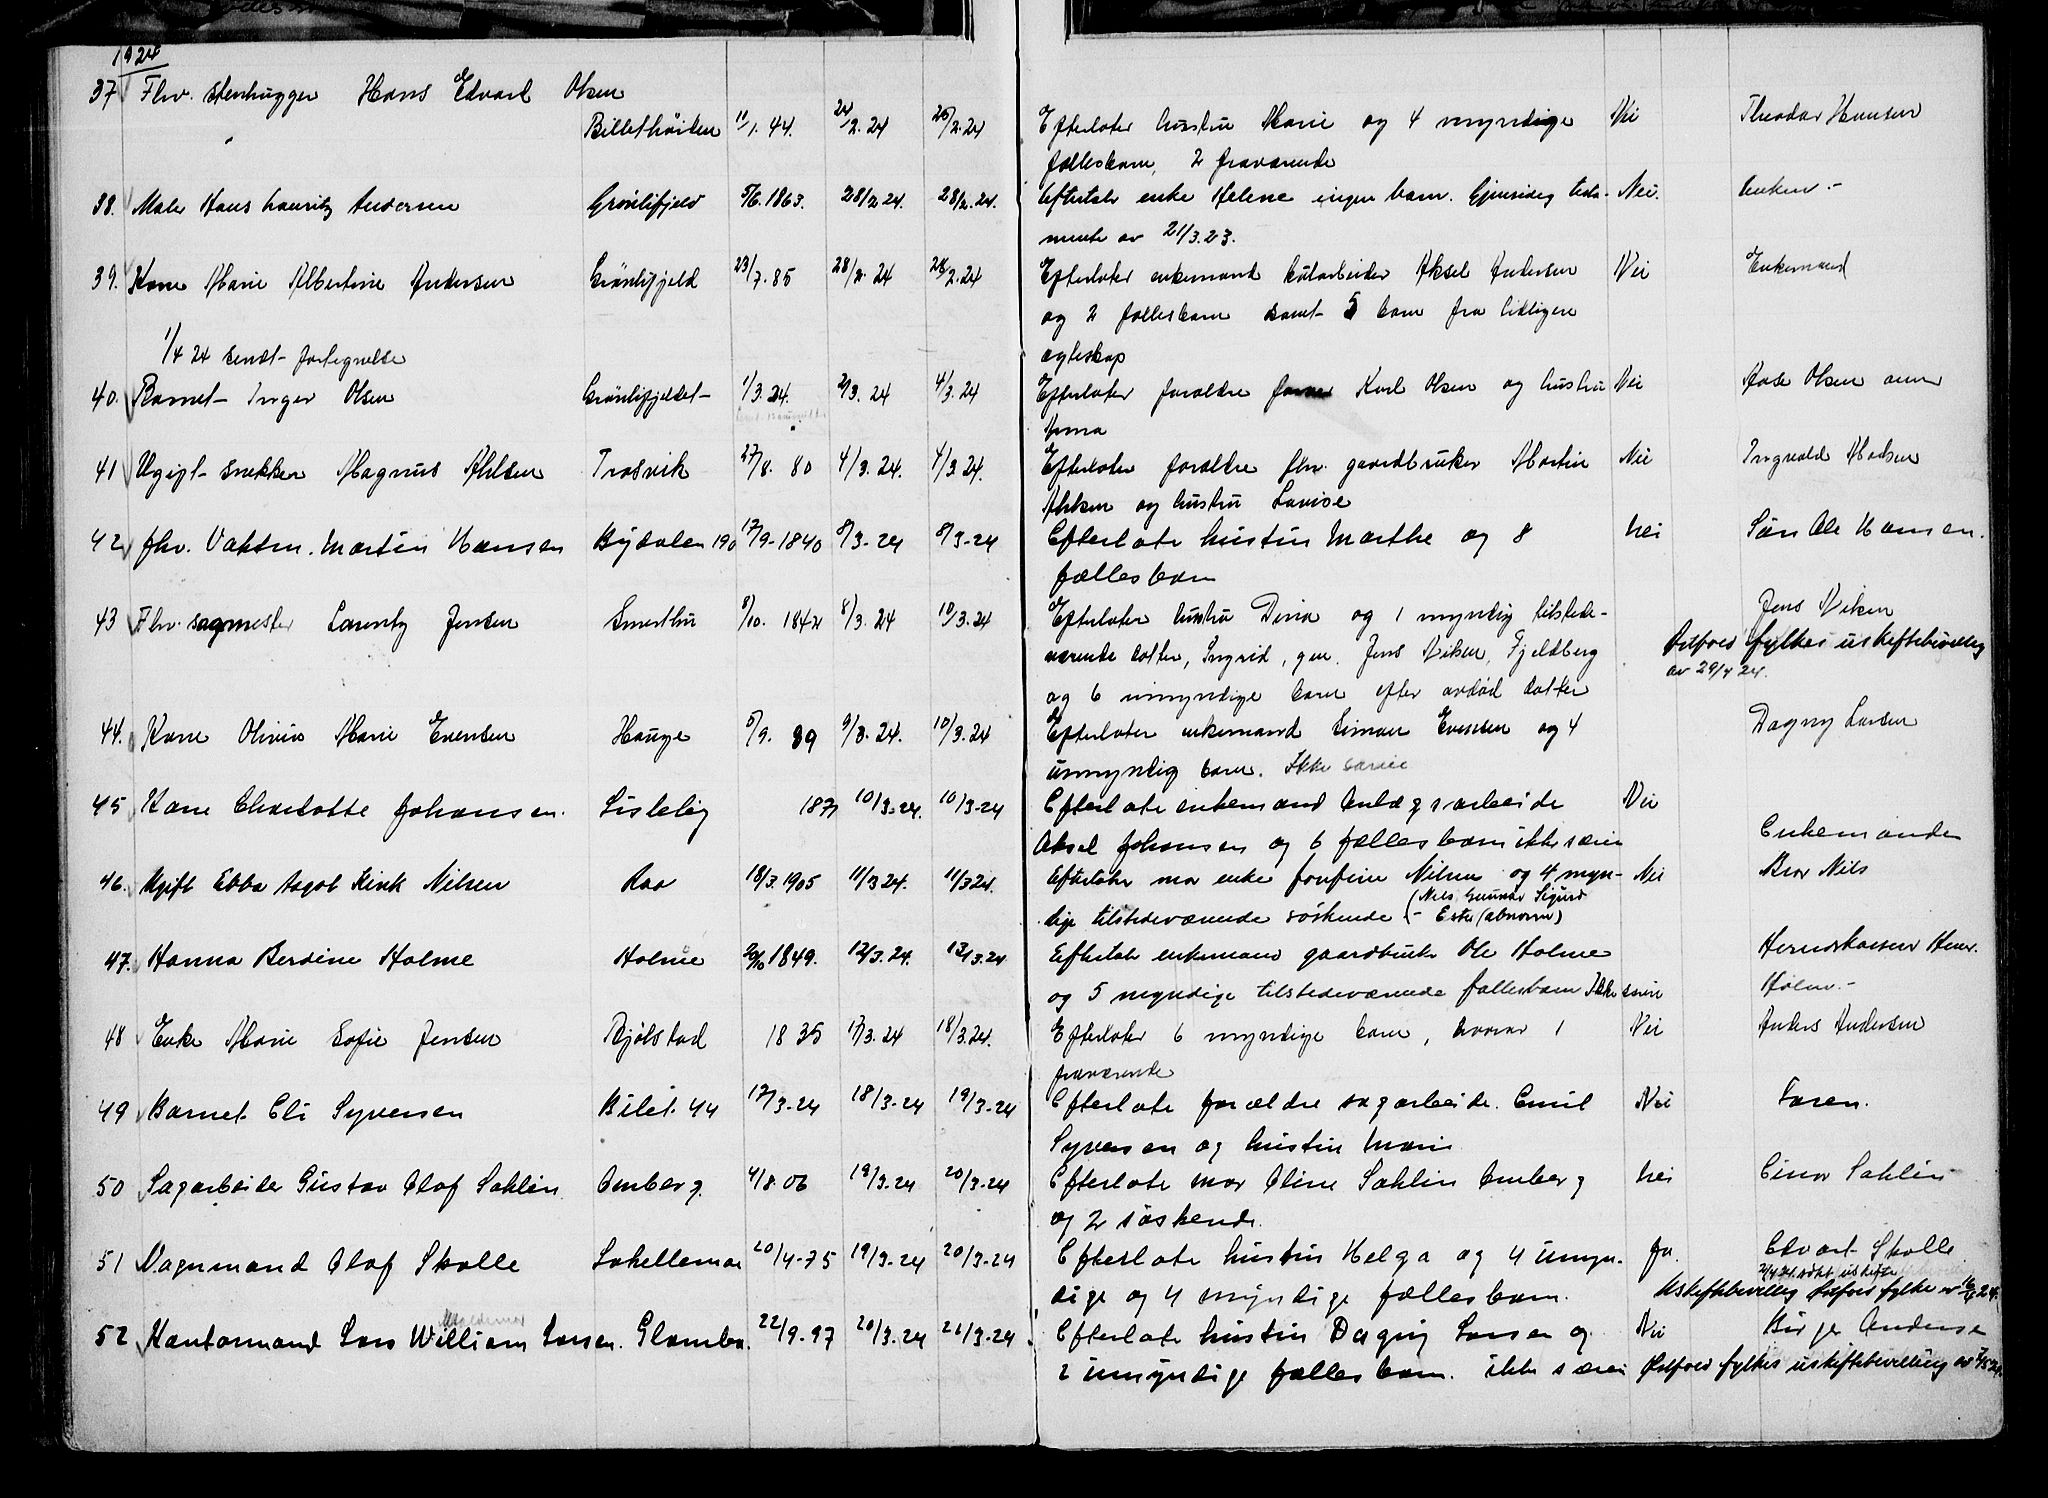 1924
37 Fhv. stenhugger Hans Edvard Olsen
Billethöiden 11/1.44. 24/2.24 25/2.24 Efterlater hustru Marie og 4 myndige Nei Theodor Hansen
fællesbarn, 2 fraværende
38. Maler Hans Lauritz Andersen Grönlifjeld 5/6.1863. 28/2 24. 28/2.24. Efterlater enke Helene ingen barn. Gjensidig testa- Nei. Enken.-
mente av 21/3.23.
39. Kone Marie Albertine Andersen Grönlifjeld 23/7.85 28/2.24 28/2.24 Efterlater enkemand Aksel Andersen Nei Enkemand
og 2 fællesbarn samt 5 barn fra tidligere
1/4 24 sendt fortegnelse
egteskap
40. Barnet Inger Olsen Grönlifjeldet 1/3.24. 2/3.24 4/3.24 Efterlater forældre Karl Olsen og hustru Nei Olsen
Anna
41 Ugift snekker Magnus Ahlsen Trosvik 27/8.80 4/3.24. 4/3 24. Efterlater forældre fhv. gaardbruker Martin Nei Ingvald Madsen
Ahlsen og hustru Lovise
42 fhv. Vaktm. Martin Hansen Bydalen 190 17/9-1840 8/3-24 8/3-24 Efterlate hustru Marthe og 8 nei Sön Ole Hansen.
fællesbarn
43 Fhv. sagmester Lorentz Jensen Smerthu 8/10. 1842 8/3.24 10/3.24 Efterlater hustru Dina og 1 myndig tilstede- Jens Viken
værende datter, Ingrid, gm. Jens Viken, Fjeldberg Østfold fylkes uskiftebevilling
av 29/4 24.
og 6 umyndige barn efter avdød datter
44. Kone Olivia Marie Evensen Hauge 5/9. 89 9/3.24. 10/3.24 Efterlater enkemand Simon Evensen og 4 Dagny Larsen
umyndig barn. Ikke særeie
45 Kone Charlotte Johansen. Lisleby 187 10/3-24. 10/3-24 Efterlate enkemand anlægsarbeide Nei
Aksel Johansen og 6 fællesbarn ikke særeie Enkemanden
46. Ugift Ebba Kirk Nilsen Roa 18/3.1905 11/3 24. 11/3 24. Efterlater mor enke Josefine Nilsen og 4 myn- Nei Bror Nils
dige tilstedeværende söskende (Nils Gunnar Sigurd
- Ester (abnorm)
47. Hanna Berdine Holme Holme 20/10 1849. 12/3.24. 13/3.24 Efterlate enkemand gaardbruker Ole Holme
og 5 myndige tilstedeværende fællesbarn Ikke særeie Holm.-
48 Enke Marie Sofie Jensen Bjölstad 1835 17/3.24 18/3.24. Efterlater 6 myndige barn, hvorav 1 Nei Anders Andersen
fraværende
49 Barnet Eli Syversen Bilet 44 17/3-24 18/3-24 19/3-24 Efterlate forældre sagarbeide. Emil Nei Faren.
Syversen og hustru Marie
50 Sagarbeider Gustav Olof Sahlin Amberg 4/8.06 19/3-24 20/3-24 Efterlate mor Oline Sahlin Amberg nei Einar Sahlin
og 2 söskende.
51 Vognmand Olof Skolle 20/4-75 19/3-24 20/3-24 Efterlate hustru Helga og 4 umyn- Ja. Edvart Skolle
dige og 4 myndige fællesbarn. Uskiftebevilling Østfold fylke
52 Kontormand Lars William Larsen. Glombo. 22/9-97 20/3-24 21/3-24 Efterlate hustru Dagny Larsen og Nei Birger Andersen
2 umyndige fællesbarn. ikke særei Østfold fylkes uskiftebevilling av